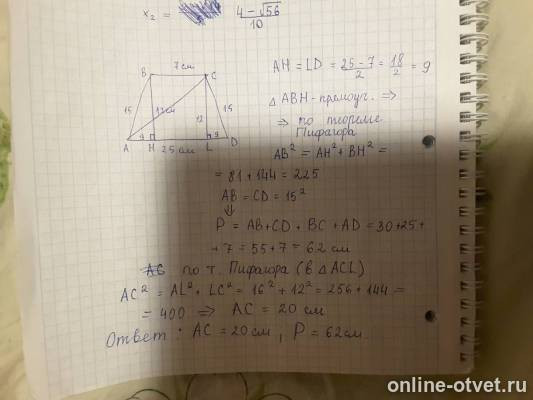 x₂ = 4-√56 / 10
7 см
B C
15 12см 12 15
A 9 H 25 см L 9 D
AH = LD = 25-7 / 2 = 18 / 2 = 9
△ ABH - прямоуг. ⇒
⇒ по теореме
Пифагора
AB² = AH² + BH² =
= 81 + 144 = 225
AB = CD = 15²
⇓
P = AB + CD + BC + AD = 30 + 25 +
+ 7 = 55 + 7 = 62 см
по т. Пифагора (в △ ACL)
AC² = AL² + LC² = 16² + 12² = 256 + 144 =
= 400 ⇒ AC = 20 см
Ответ: AC = 20 см, P = 62 см.
online-otvet.ru